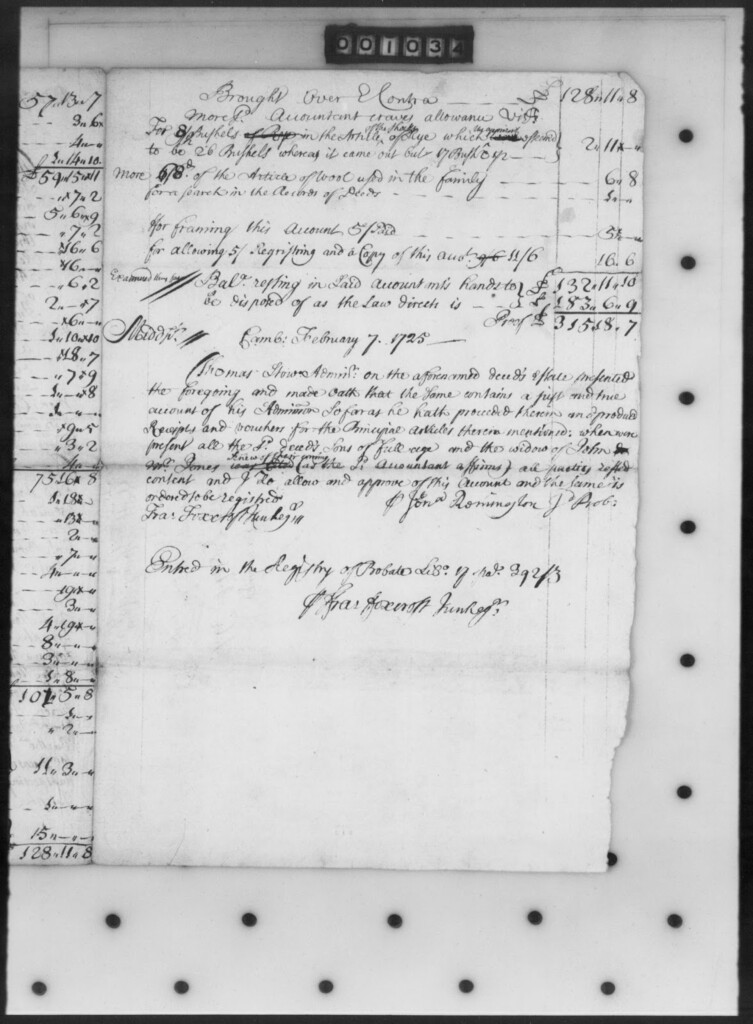 001034
57 " 13 " 7
3 " 6
4 " "
1 " 14 " 10
59 " 5 " 11
" 7 " 2
5 " 6 " 9
" 7 " 2
16 " 6
16 " "
" 6 " 2
2 " " 7
" 6 " "
1 " 10 " 10
18 " 7
" 7 " 9
1 " " 8
1 " " "
" 9 " 5
" 3 " 2
4 "
75 16 " 8
1 " 18
" 13
2 " "
" 7 "
3 "
4 " 19
8 " "
3 "
1 " 8 "
107 " 5 " 8
1 "
" 2 "
11 " 3 "
1 " " "
15 " "
128 " 11 " 8
Brought Over & Contra 128 " 11 " 8
More Sd. Accountant craves allowance Vidt.
For 8½ Bushels in the Article of Rye which
to be 26 Bushels whereas it came out but 17 Bush & 1/2 2 " 11
More of the Article of Wool used in the Family 6 " 8
for a search in the Records of Deeds 1 " "
For framing this Account 5/ 5 "
for allowing 5/ Registring and a Copy of this acct. 11/6 16 " 6
Examined Balce. resting in said Accountants hands to £ 132 " 11 " 10
be disposed of as the Law directs is £ 183 " 6 " 9
Proof £ 315 18 " 7
Middx. Camb: February 7. 1725
Thomas on the aforenamed deceds Estate presented
the foregoing and made Oath that the same contains a just and true
account of his Admincon so far as he hath proceeded therein and produced
Receipts and vouchers for the Principal Articles therein mentioned; when were
present all the Sd. deceds Sons of full age and the widow of John
Jones (as the Sd. Accountant affirms) all parties
consent and I do allow and approve of this Account and the same is
ordered to be registred
Fra: Foxcroft Jun Regr. P Jona. Remington J Prob:
Entred in the Registry of Probate Libo. 17 Pa. 392/3
P Fra: Foxcroft Jun Regr.